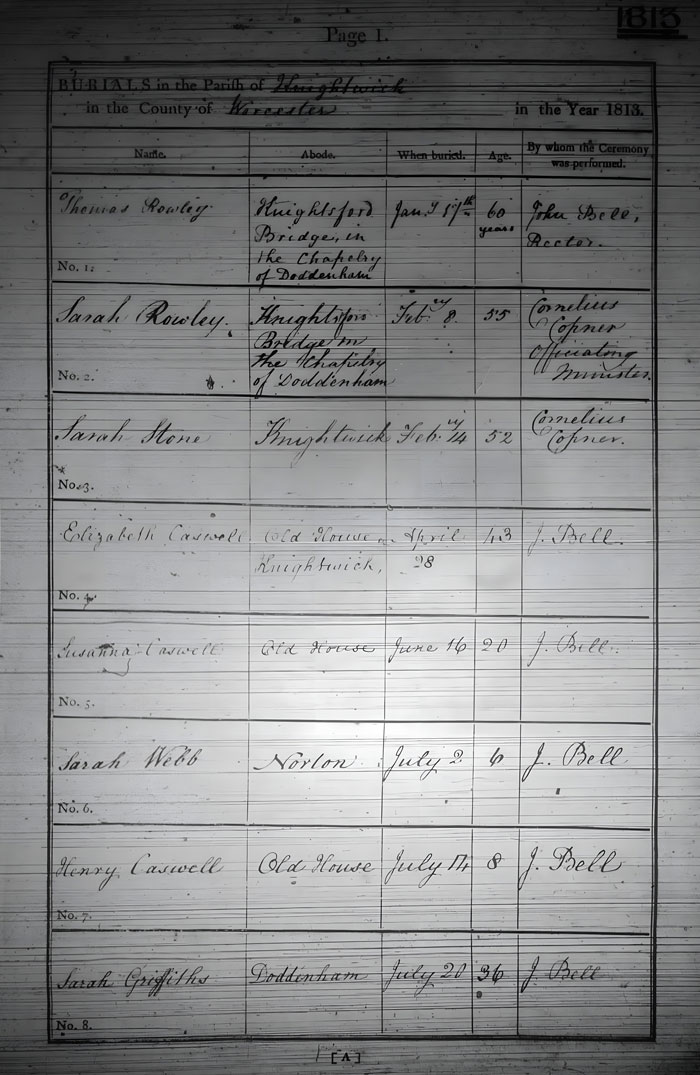 1813
Page 1.
BURIALS in the Parish of Knightwick
in the County of Worcester in the Year 1813.
Name. Abode. When buried. Age. By whom the Ceremony was performed.
Thomas Rowley
Knightsford
Bridge, in
the Chapelry
of Doddenham
Jan.y
60
years
John Bell,
Rector.
No. 1.
Sarah Rowley.
Knightsford
Bridge in
the Chapelry
of Doddenham
Feb.ry 8
55
Cornelius
Copner
Officiating
Minister.
No. 2.
Sarah Stone
Knightwick
Feb.ry 14
52
Cornelius
Copner.
No. 3.
Elizabeth Caswell
Old House
Knightwick,
April
28
43
J. Bell.
No. 4.
Susanna Caswell
Old House
June 16
20
J. Bell.
No. 5.
Sarah Webb
Norton
July 2
6
J. Bell
No. 6.
Henry Caswell
Old House
July 14
8
J. Bell
No. 7.
Sarah Griffiths
Doddenham
July 20
36
J. Bell
No. 8.
[A]